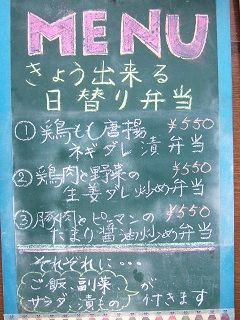 MENU
きょう出来る
日替り弁当
① 鶏もも唐揚 ¥550
ネギダレ漬弁当
② 鶏肉と野菜の ¥550
生姜ダレ炒め弁当
③ 豚肉とピーマンの ¥550
たまり醤油炒め弁当
それぞれに…
ご飯、副菜、
サラダ、漬もの が付きます